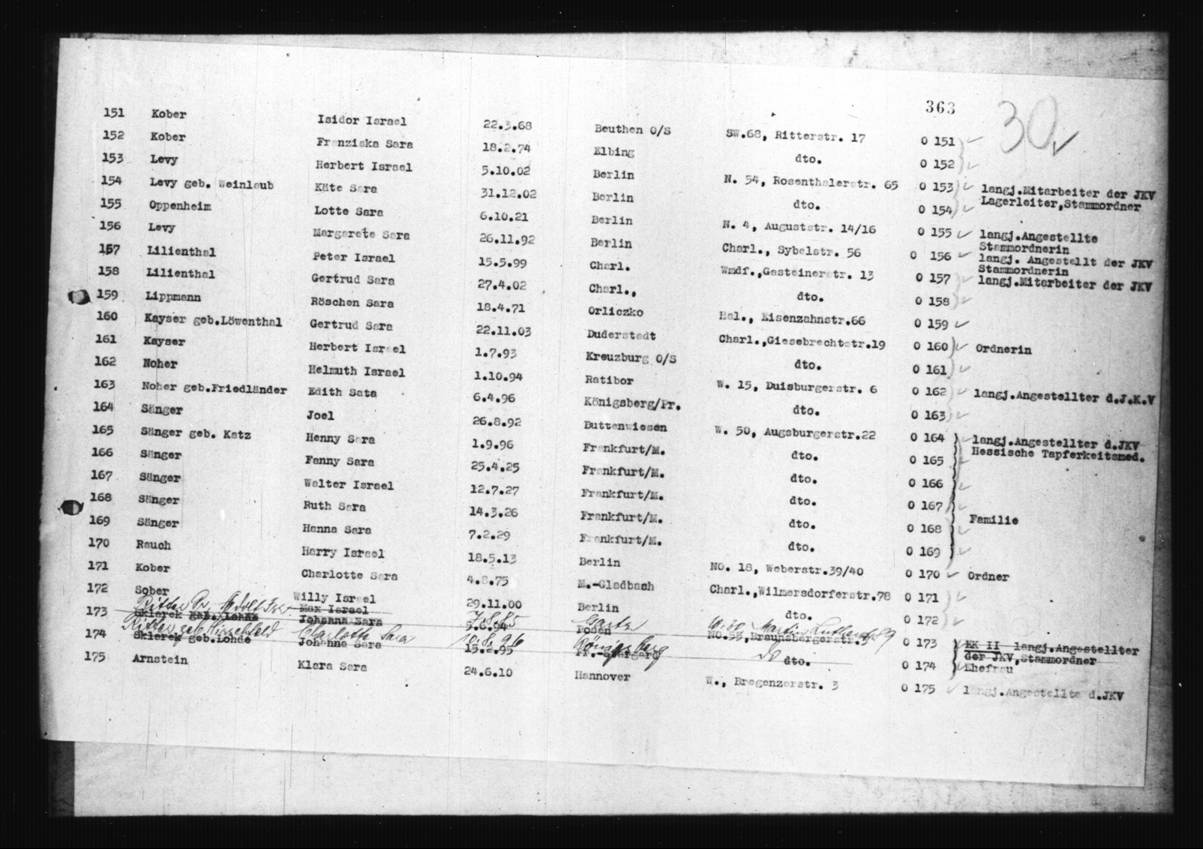 363
30
151 Kober Isidor Israel 22.3.68 Beuthen O/S SW.68, Ritterstr. 17 O 151
152 Kober Franziska Sara 18.2.74 Elbing dto. O 152
153 Levy Herbert Israel 5.10.02 Berlin N. 54, Rosenthalerstr. 65 O 153 langj.Mitarbeiter der JKV
Lagerleiter,Stammordner
154 Levy geb. Weinlaub Käte Sara 31.12.02 Berlin dto. O 154
155 Oppenheim Lotte Sara 6.10.21 Berlin N. 4, Auguststr. 14/16 O 155 langj.Angestellte
Stammordnerin
156 Levy Margarete Sara 26.11.92 Berlin Charl., Sybelstr. 56 O 156 langj. Angestellt der JKV
Stammordnerin
157 Lilienthal Peter Israel 15.5.99 Charl. Wmdf.,Gasteinerstr. 13 O 157 langj.Mitarbeiter der JKV
158 Lilienthal Gertrud Sara 27.4.02 Charl., dto. O 158
159 Lippmann Röschen Sara 18.4.71 Orliczko Hal., Eisenzahnstr.66 O 159
160 Kayser geb.Löwenthal Gertrud Sara 22.11.03 Duderstadt Charl.,Giesebrechtstr.19 O 160 Ordnerin
161 Kayser Herbert Israel 1.7.93 Kreuzburg O/S dto. O 161
162 Noher Helmuth Israel 1.10.94 Ratibor W. 15, Duisburgerstr. 6 O 162 langj.Angestellter d.J.K.V
163 Noher geb.Friedländer Edith Sata 6.4.96 Königsberg/Pr. dto. O 163
164 Sänger Joel 26.8.92 Buttenwiesen W. 50, Augsburgerstr.22 O 164 langj.Angestellter d.JKV
Hessische Tapferkeitsmed.
165 Sänger geb. Katz Henny Sara 1.9.96 Frankfurt/M. dto. O 165
166 Sänger Fanny Sara 25.4.25 Frankfurt/M. dto. O 166
167 Sänger Walter Israel 12.7.27 Frankfurt/M. dto. O 167
168 Sänger Ruth Sara 14.3.26 Frankfurt/M. dto. O 168 Familie
169 Sänger Hanna Sara 7.2.29 Frankfurt/M. dto. O 169
170 Rauch Harry Israel 18.5.13 Berlin NO. 18, Weberstr.39/40 O 170 Ordner
171 Kober Charlotte Sara 4.8.75 M.-Gladbach Charl.,Wilmersdorferstr.78 O 171
172 Sober Willy Israel 29.11.00 Berlin dto. O 172
Ritter Dr. Adolf Isr
173 Sklarek Max Israel Posen NO.55,Braunsbergerstr.5 O 173 EK II langj.Angestellter
der JKV,Stammordner
Ritter geb. Hirschfeld Charlotte Sara 10.8.96 Königsberg
174 Sklarek geb.Lohde Johanna Sara dto. O 174 Ehefrau
175 Arnstein Klara Sara 24.6.10 Hannover W., Bregenzerstr. 3 O 175 langj.Angestellte d.JKV